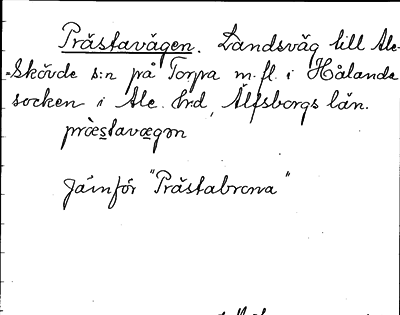 Prästavägen. Landsväg till Ale-
-Skövde s:n på Torpa m. fl. i Hålanda
socken i Ale hrd, Älfsborgs län.
præstavægən
Jämför "Prästabrona"